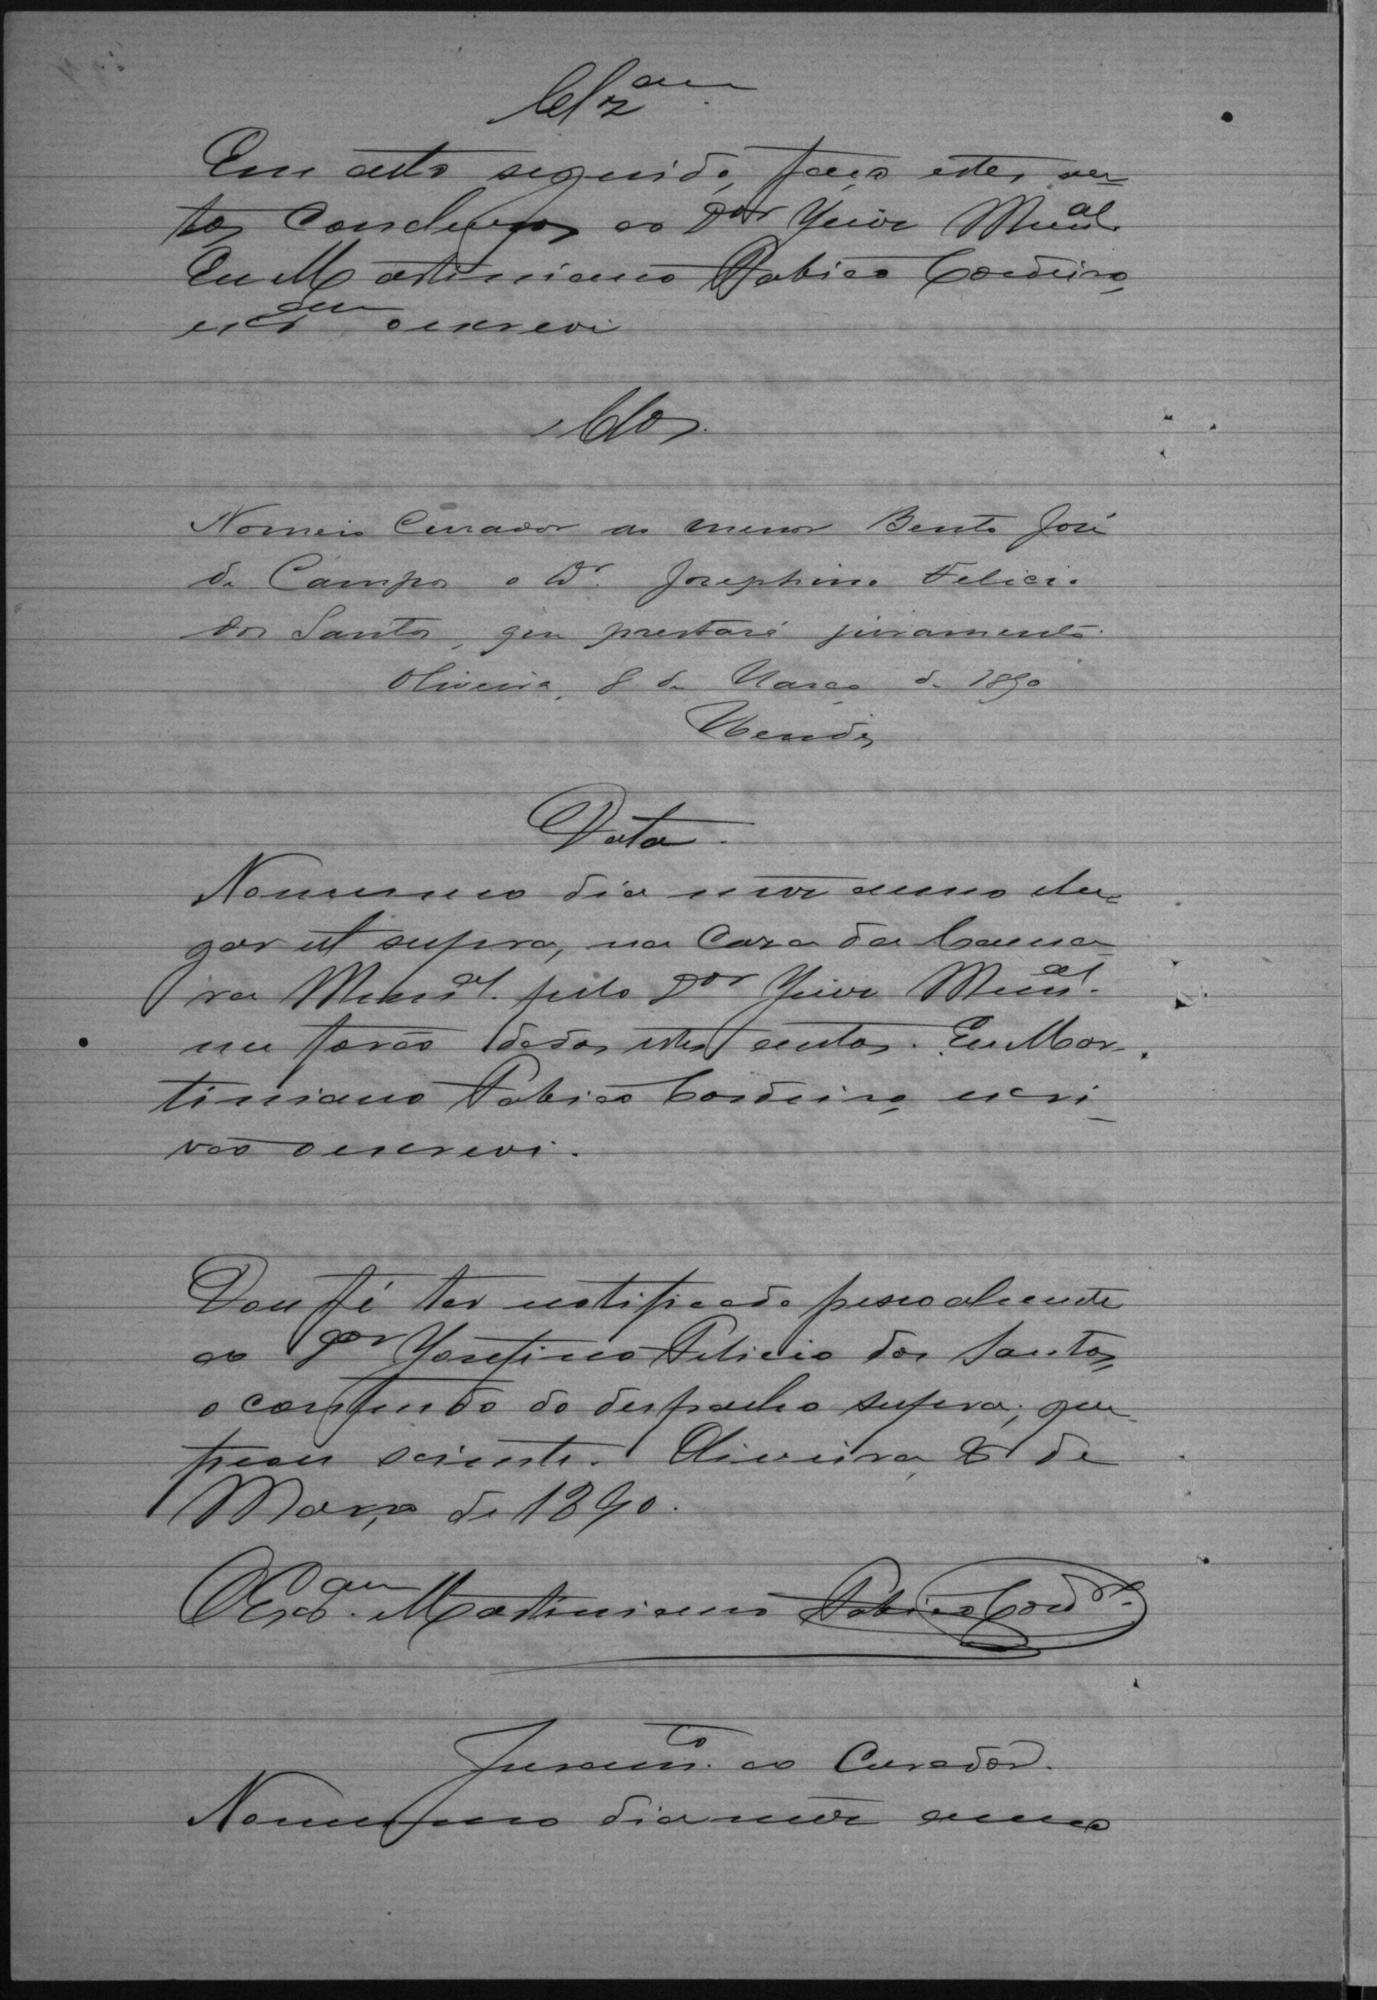 Clzam
Em acto seguido, faço estes au-
tos conclusos ao Dor Juiz Munal.
Eu Martiniano Fabião Cordeiro,
escram o escrevi
Clos.
Nomeio Curador ao menor Bento José
de Campos o Dr. Josephino Felicio
dos Santos, que prestará juramento.
Oliveira, 8 de Março de 1890
Mendes
Data.
No mesmo dia mez anno e lu-
gar ut supra, na Caza da Cama-
ra Munal. pelo Dor Juiz Munal.
me forão dados estes autos. Eu Mar-
tiniano Fabião Cordeiro, escri-
vão o escrevi.
Dou fé ter notificado pesoalmente
ao Dor Josefino Felicio dos Santos,
o contiudo do despacho supra; que
ficou sciente. Oliveira, 8 de
Março de 1890.
O Escram. Martiniano Fabião Cordro.
Juramto. ao Curador.
No mesmo dia mez anno